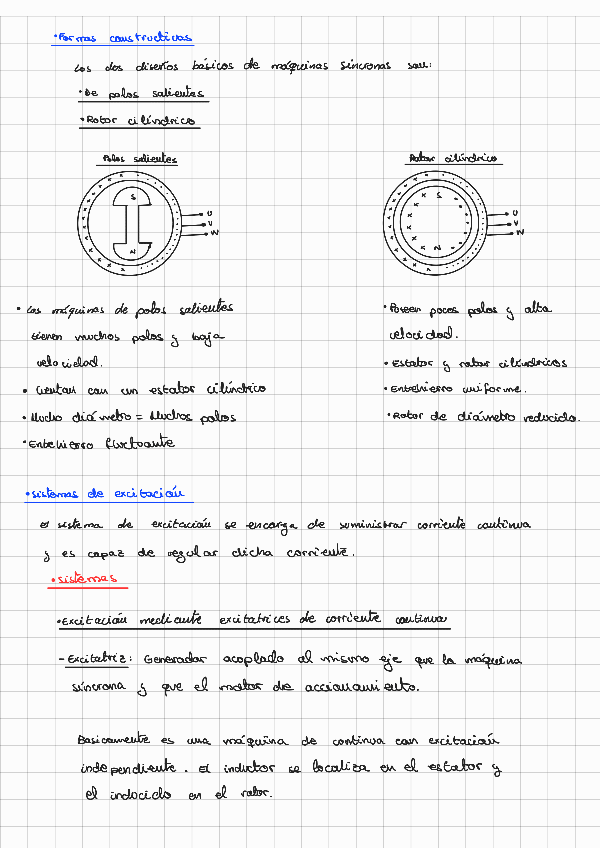 • Formas constructivas
Los dos diseños básicos de máquinas síncronas son:
• De polos salientes
• Rotor cilíndrico
Polos salientes
Rotor cilíndrico
S
N
U
V
W
S
N
U
V
W
• Las máquinas de polos salientes
tienen muchos polos y baja
velocidad.
• Cuentan con un estator cilíndrico
• Mucho diámetro = Muchos polos
• Entehierro fluctuante
• Poseen pocos polos y alta
velocidad.
• Estator y rotor cilíndricos
• Entehierro uniforme.
• Rotor de diámetro reducido.
• Sistemas de excitación
El sistema de excitación se encarga de suministrar corriente continua
y es capaz de regular dicha corriente.
• Sistemas
• Excitación mediante excitatrices de corriente continua
- Excitatriz: Generador acoplado al mismo eje que la máquina
síncrona y que el motor de accionamiento.
Basicamente es una máquina de continua con excitación
independiente. El inductor se localiza en el estator y
el inducido en el rotor.